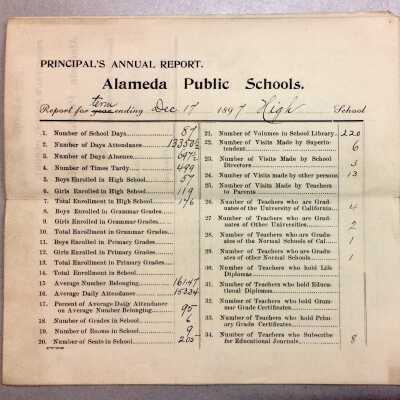 PRINCIPAL'S ANNUAL REPORT.
Alameda Public Schools.
Report for term year ending Dec 17 1897 High School
1. Number of School Days 87
2. Number of Days Attendance 13350½
3. Number of Days Absence
4. Number of Times Tardy 499
5. Boys Enrolled in High School 57
6. Girls Enrolled in High School 119
7. Total Enrollment in High School 176
8. Boys Enrolled in Grammar Grades
9. Girls Enrolled in Grammar Grades
10. Total Enrollment in Grammar Grades
11. Boys Enrolled in Primary Grades
12. Girls Enrolled in Primary Grades
13. Total Enrollment in Primary Grades
14. Total Enrollment in School
15. Average Number Belonging 161.47
16. Average Daily Attendance 153.34
17. Percent of Average Daily Attendance
on Average Number Belonging 95
18. Number of Grades in School 6
19. Number of Rooms in School 9
20. Number of Seats in School 205
21. Number of Volumes in School Library 220
22. Number of Visits Made by Superin-
tendent 6
23. Number of Visits Made by School
Directors 3
24. Number of Visits made by other persons 13
25. Number of Visits Made by Teachers
to Parents
26. Number of Teachers who are Grad-
uates of the University of California 4
27. Number of Teachers who are Grad-
uates of Other Universities 2
28. Number of Teachers who are Gradu-
ates of the Normal Schools of Cal 1
29. Number of Teachers who are Gradu-
ates of other Normal Schools 1
30. Number of Teachers who hold Life
Diplomas
31. Number of Teachers who hold Educa-
tional Diplomas
32. Number of Teachers who hold Gram-
mar Grade Certificates
33. Number of Teachers who hold Prim-
ary Grade Certificates
34. Number of Teachers who Subscribe
for Educational Journals 8